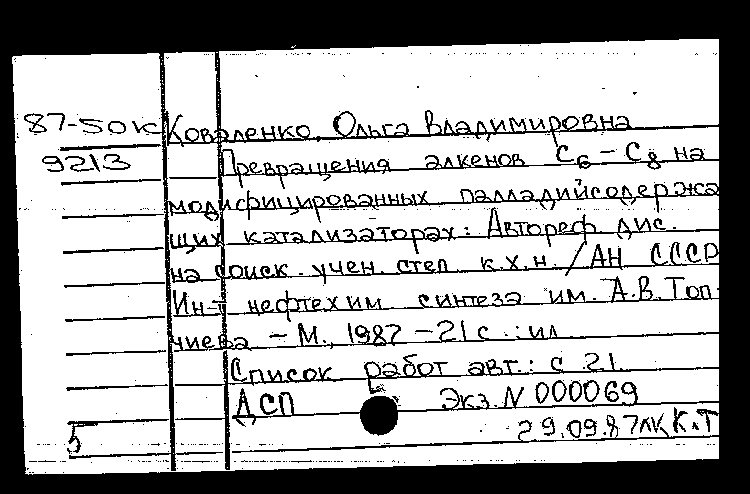 87-50к Коваленко, Ольга Владимировна
9213 Превращения алкенов С6-С8 на
модифицированных палладийсодержа
щих катализаторах: Автореф. дис.
на соиск. учен. степ. к.х.н. /АН СССР
Ин-т нефтехим. синтеза им. А.В.Топ-
чиева - М., 1987 - 21 с.: ил
Список работ авт.: с 21.
ДСП Экз. N 000069
5 29.09.87 К.Т